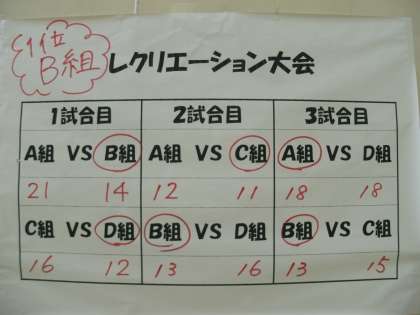 1位
B組
レクリエーション大会
1試合目 2試合目 3試合目
A組 VS B組 A組 VS C組 A組 VS D組
21 14 12 11 18 18
C組 VS D組 B組 VS D組 B組 VS C組
16 12 13 16 13 15